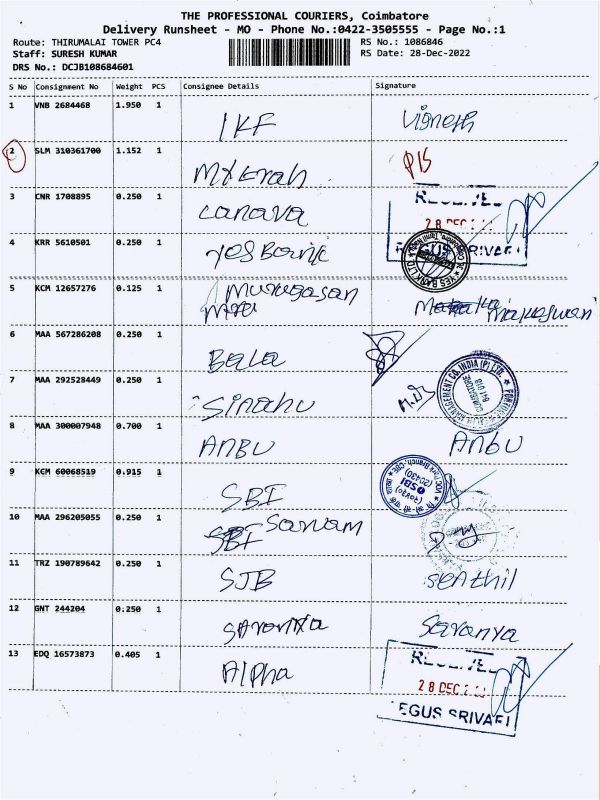 THE PROFESSIONAL COURIERS, Coimbatore
Delivery Runsheet - MO - Phone No.:0422-3505555 - Page No.:1
Route: THIRUMALAI TOWER PC4 RS No.: 1086846
Staff: SURESH KUMAR RS Date: 28-Dec-2022
DRS No.: DCJB108684601
S No Consignment No Weight PCS Consignee Details Signature
1 VNB 2684468 1.950 1 IKF Vignesh
2 SLM 310361700 1.152 1
3 CNR 1708895 0.250 1 Canava RECEIVED
28 DEC
4 KRR 5610501 0.250 1 YES Bank YES BANK LTD.
5 KCM 12657276 0.125 1 Murugasan
6 MAA 567286208 0.250 1 Bala
7 MAA 292528449 0.250 1 Sindhu MANAGEMENT CO. INDIA (P) LTD.
8 MAA 300007948 0.700 1 ANBU Anbu
9 KCM 60068519 0.915 1 SBI SBI
10 MAA 296205055 0.250 1 Sanam
11 TRZ 190789642 0.250 1 SJB Senthil
12 GNT 244204 0.250 1 Saranya
13 EDQ 16573873 0.405 1 Alpha RECEIVED
28 DEC